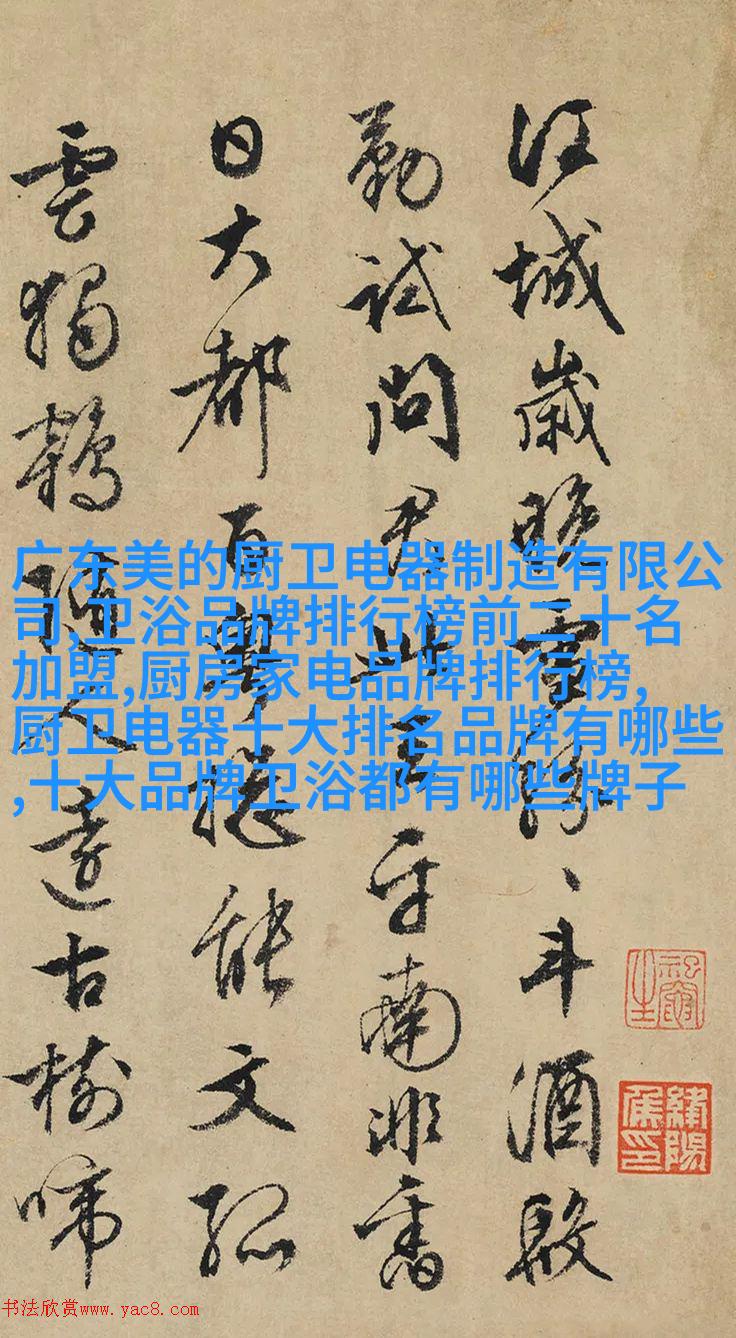 江城歲晚雪紛〻斗酒殷
勤試問君此去平南非舊
日大都百粵總能文孤
雲獨鶴隨人遠古樹啼
广东美的厨卫电器制造有限公
司,卫浴品牌排行榜前二十名
加盟,厨房家电品牌排行榜,
厨卫电器十大排名品牌有哪些
,十大品牌卫浴都有哪些牌子
书法欣赏www.yac8.com